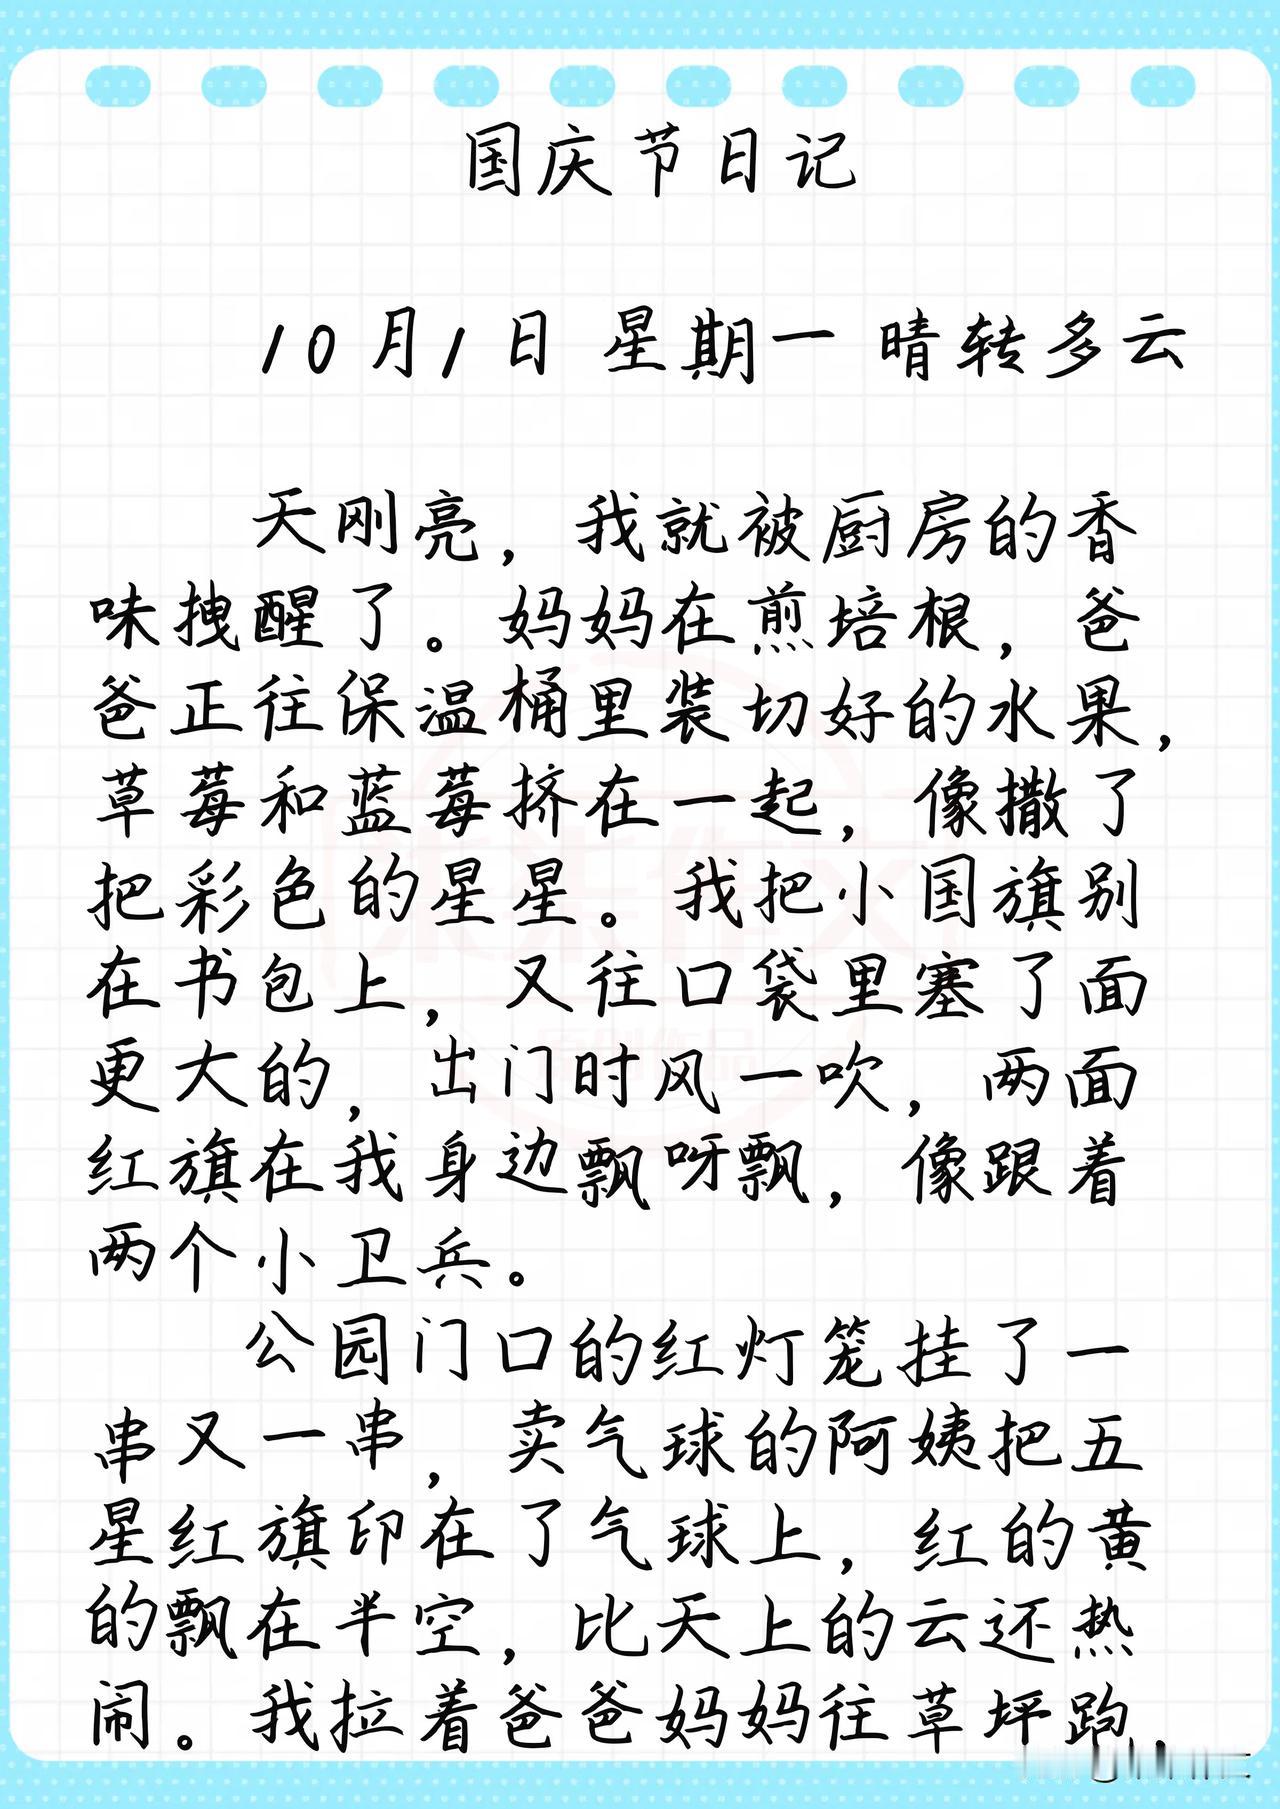 国庆节日记
10月1日 星期一 晴转多云
天刚亮，我就被厨房的香
味拽醒了。妈妈在煎培根，爸
爸正往保温桶里装切好的水果，
草莓和蓝莓挤在一起，像撒了
把彩色的星星。我把小国旗别
在书包上，又往口袋里塞了面
更大的，出门时风一吹，两面
红旗在我身边飘呀飘，像跟着
两个小卫兵。
公园门口的红灯笼挂了一
串又一串，卖气球的阿姨把五
星红旗印在了气球上，红的黄
的飘在半空，比天上的云还热
闹。我拉着爸爸妈妈往草坪跑，